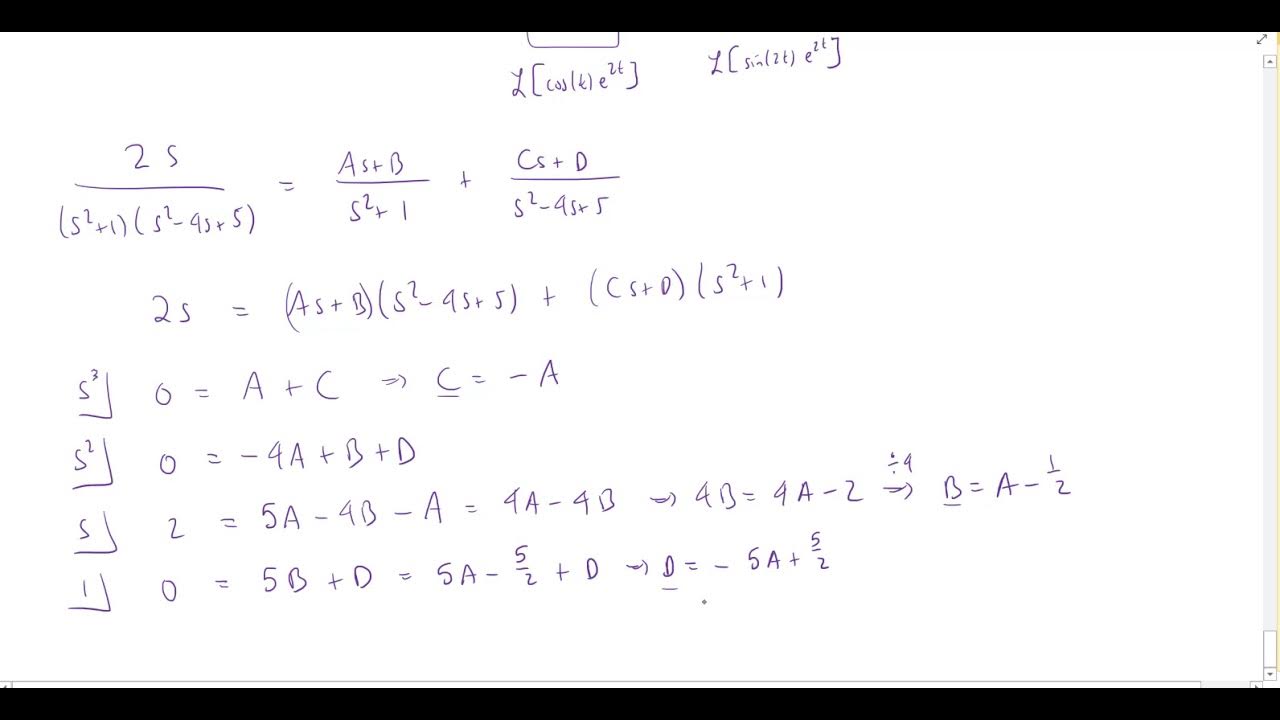 ℒ[cos(t) e^{2t}] ℒ[sin(2t) e^{2t}]
2s / ((s²+1)(s²-4s+5)) = (As+B)/(s²+1) + (Cs+D)/(s²-4s+5)
2s = (As+B)(s²-4s+5) + (Cs+D)(s²+1)
s³] 0 = A + C => C = -A
s²] 0 = -4A + B + D
s] 2 = 5A - 4B - A = 4A - 4B => 4B = 4A - 2 ÷4 => B = A - 1/2
1] 0 = 5B + D = 5A - 5/2 + D => D = - 5A + 5/2